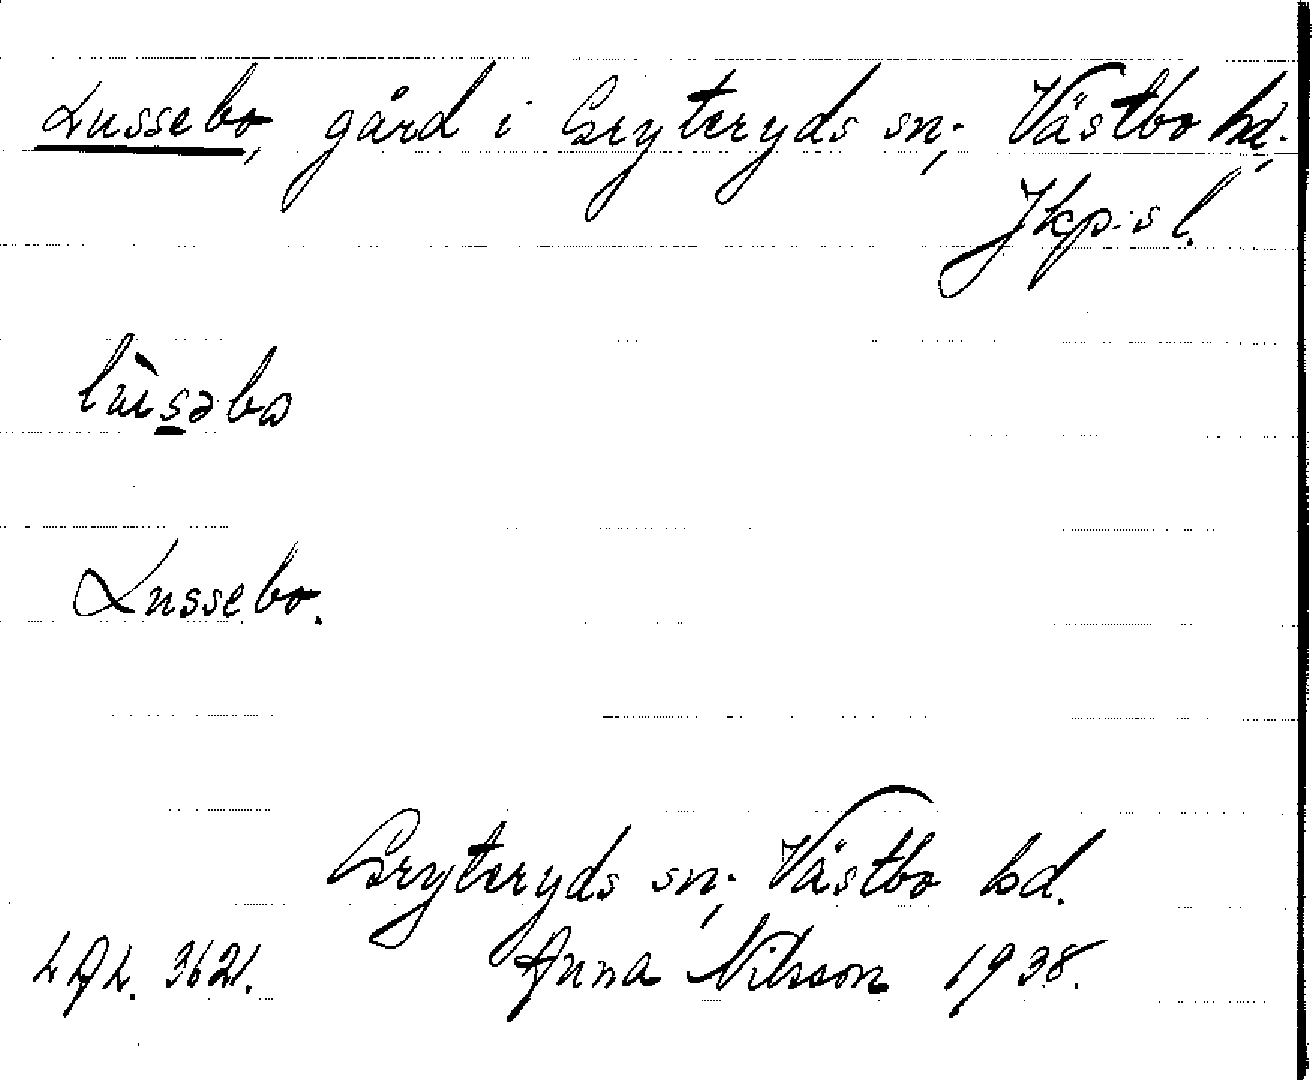 Lussebo, gård i Gryteryds sn; Västbo hd.,
Jkp:s l.
lùsəbo
Lussebo.
Gryteryds sn; Västbo hd.
LAL. 3621. Anna Nilsson 1938.